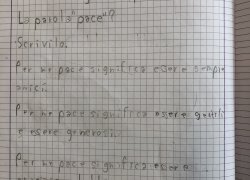 La parola "pace"?
Scrivilo.
Per me pace significa essere sempre
amici.
Per me pace significa essere gentili
e essere generosi.
Per me pace significa essere